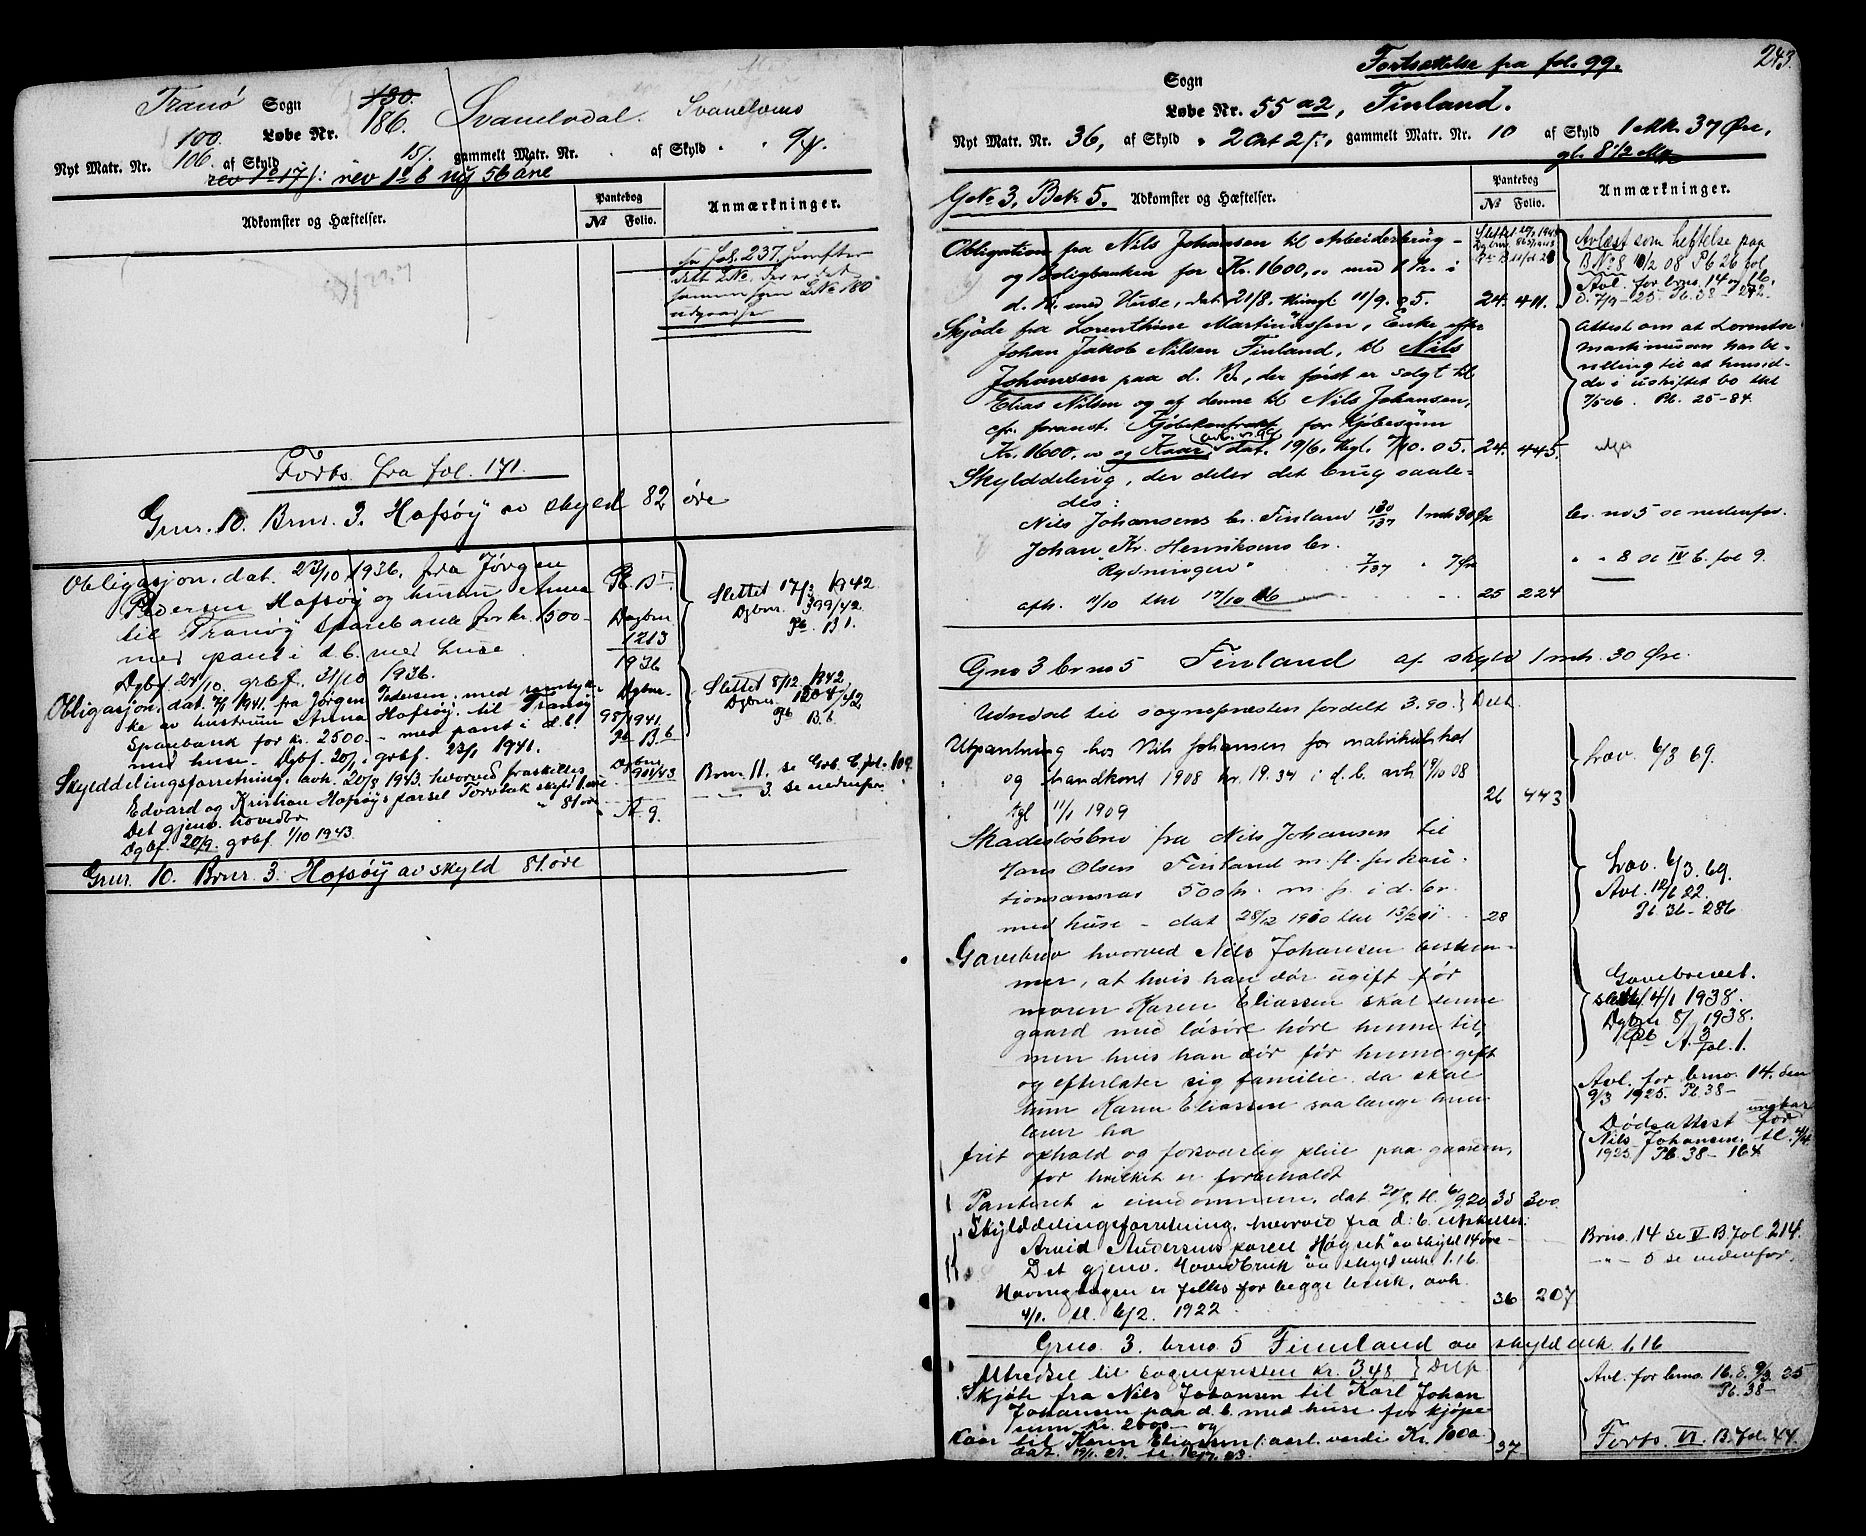 Tranø Sogn 180. Svanelvdal. Svanelvens
100. Løbe Nr. 186.
Nyt Matr. Nr. 106. af Skyld 15/. gammelt Matr. Nr. . af Skyld " "
rev 1 ο 6 ny 56 øre
Adkomster og Hæftelser.
Pantebog
No Folio.
Anmærkninger.
se fol. 237, hvorefter
dette LNo.
samme som LNo 180
udgaar
Forts. fra fol. 171.
Gnr. 10. Brnr. 3. Hofsøy av skyld 82 øre
Obligasjon, dat. 23/10 1936, fra Jørgen
Pedersen Hofsøy og hustru Anna
til Tranøy Sparebank for kr. 1500.-
med pant i d.b. med huse.
Dgbf. 24/10. grbf. 31/10 1936.
Pb. B
Dagbnr.
1213
1936
Slettet 17/3 1942
Dgbnr. 399/42.
Pb. B 1.
Obligasjon, dat. 7/1 1941, fra Jørgen Pedersen, med samtyk-
ke av hustruen Anna Hofsøy, til Tranøy
Sparebank for kr. 2500.- med pant i d.b.
med huse. Dgbf. 20/1. grbf. 23/1 1941.
Dgbnr.
98/1941
Pb B 6
Slettet 8/12 1942
Dgbnr. 1204/42
Pb B. 6.
Skylddelingsforretning, avh. 20/8 1943 hvorved fraskilles
Edvard og Kristian Hofsøys parsel Torvbak skyld 1 øre
Det gjenv. hovedbr. " 81 øre
Dgbf. 20/9. grbf 1/10 1943.
Dgbnr
901/43
A 9.
Brnr. 11. se Grb. C fol. 109
—"— 3 se nedenfor
Gnr. 10. Brnr. 3. Hofsøy av skyld 81 øre
Fortsættelse fra fol. 99.
243.
Sogn
Løbe Nr. 55 a2, Finland.
Nyt Matr. Nr. 36, af Skyld " 2 Ort 2 ſ., gammelt Matr. Nr. 10 af Skyld 1 Mk. 37 Øre,
GNo 3, BNo 5. Adkomster og Hæftelser.
Pantebog
No Folio.
Anmærkninger.
Obligation fra Nils Johansen til Arbeiderbrug-
og Boligbanken for Kr. 1600,00 med 1 Pr. i
d. Br. med Huse, dat. 21/8. thingl. 11/9. 05. 24. 411.
Avlæst som heftelse paa
BNo 8 10/2 08 Pb 26 fol
Avl. for brno. 14 og 16.
d. 7/9-25 Pb. 38-242.
Skjøde fra Lorenthine Martinussen, Enke efter
Johan Jakob Nilsen Finland, til Nils
Johansen paa d. Br., der først er solgt til
Elias Nilsen og af denne til Nils Johansen,
cfr. foranst. Kjøbekontrakt for Kjøbesum
Kr. 1600.00 og Kaar, dat. 19/6. thgl. 7/10. 05. 24. 445.
Attest om at Lorentse
Martinussen har be-
villing til at hensid-
de i uskiftet bo thl
7/5 06. Pb. 25-84.
Skylddeling, der deler det brug saale-
des:
Nils Johansens br. Finland 130/137 1 mk 30 Øre
br. no 5 se nedenfor.
Johan Kr. Henriksens br.
"Rydningen" 7/137 " 7 Øre
" " 8 se IV b. fol 9.
afh. 11/10 thl 17/10 06 25 224
Gno 3 brno 5 Finland af skyld 1 mk. 30 Øre.
Udredsel til sognepræsten fordelt 3.90. Delt
Utpantning hos Nils Johansen for matrikulskat
og 1908 kr. 19.34 i d.b. avh 9/10 08
tgl 11/1 1909 26 443
Lov. 6/3 69.
Skadesløsbrev fra Nils Johansen til
Hans Olsen Finland m. fl. for kau-
tionsansvar 500 kr. m. p. i d. br.
med huse - dat 28/12 1910 thl 13/2 11 28
Lov. 6/3. 69.
Avl. 12/6 22.
Pb. 36-286
Gavebrev hvorved Nils Johansen bestem-
mer, at hvis han dør ugift før
moren Karen Eliassen skal denne
gaard med løsøre høre hende til,
men hvis han dør før hende gift
og efterlater sig familie da skal
hun Karen Eliassen saa længe hun
lever ha
frit ophold og forsvarlig pleie paa gaarden,
for hvilket er forbeholdt
Panteret i eiendommen, dat 20/8. tl. 6/9 20 35 300
Gavebrevet
slettet 4/1 1938.
Dgbnr 8/ 1938.
Pb A. 3
fol. 1.
Avl. for brno. 14. den
9/3 1925. Pb. 38-
Dødsattest ungkar
for
Nils Johansen. tl. 4/4
1925 Pb. 38-164
Skylddelingsforretning, hvorved fra d. b. utskilles:
Arvid Andersens parcel "Høgset" av skyld 14 øre
Det gjenv. Hovedbruk av skyld mk 1.16
Havnegangen er felles for begge bruk, avh.
4/1. tl. 6/2. 1922 36 207
Brno. 14 se V B. fol. 214.
—"— 5 se nedenfor.
Gno. 3. brno. 5 Finnland av skyld mk. 1.16
Utredsel til sognepresten kr. 3.48 Delt
Skjøte fra Nils Johansen til Karl Johan
Johansen paa d. b. med huse for kjøpe-
sum kr. 2000.- og
Kaar til Karen Eliassen 5 aarl. verdi Kr. 1000.
37-
Avl. for brno. 16. d. 9/3 25
Pb. 38-
Forts. VI. B. fol. 44.